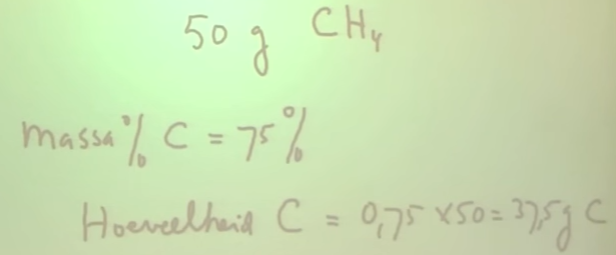 50 g CH₄
massa% C = 75%
Hoeveelheid C = 0,75 x 50 = 37,5 g C